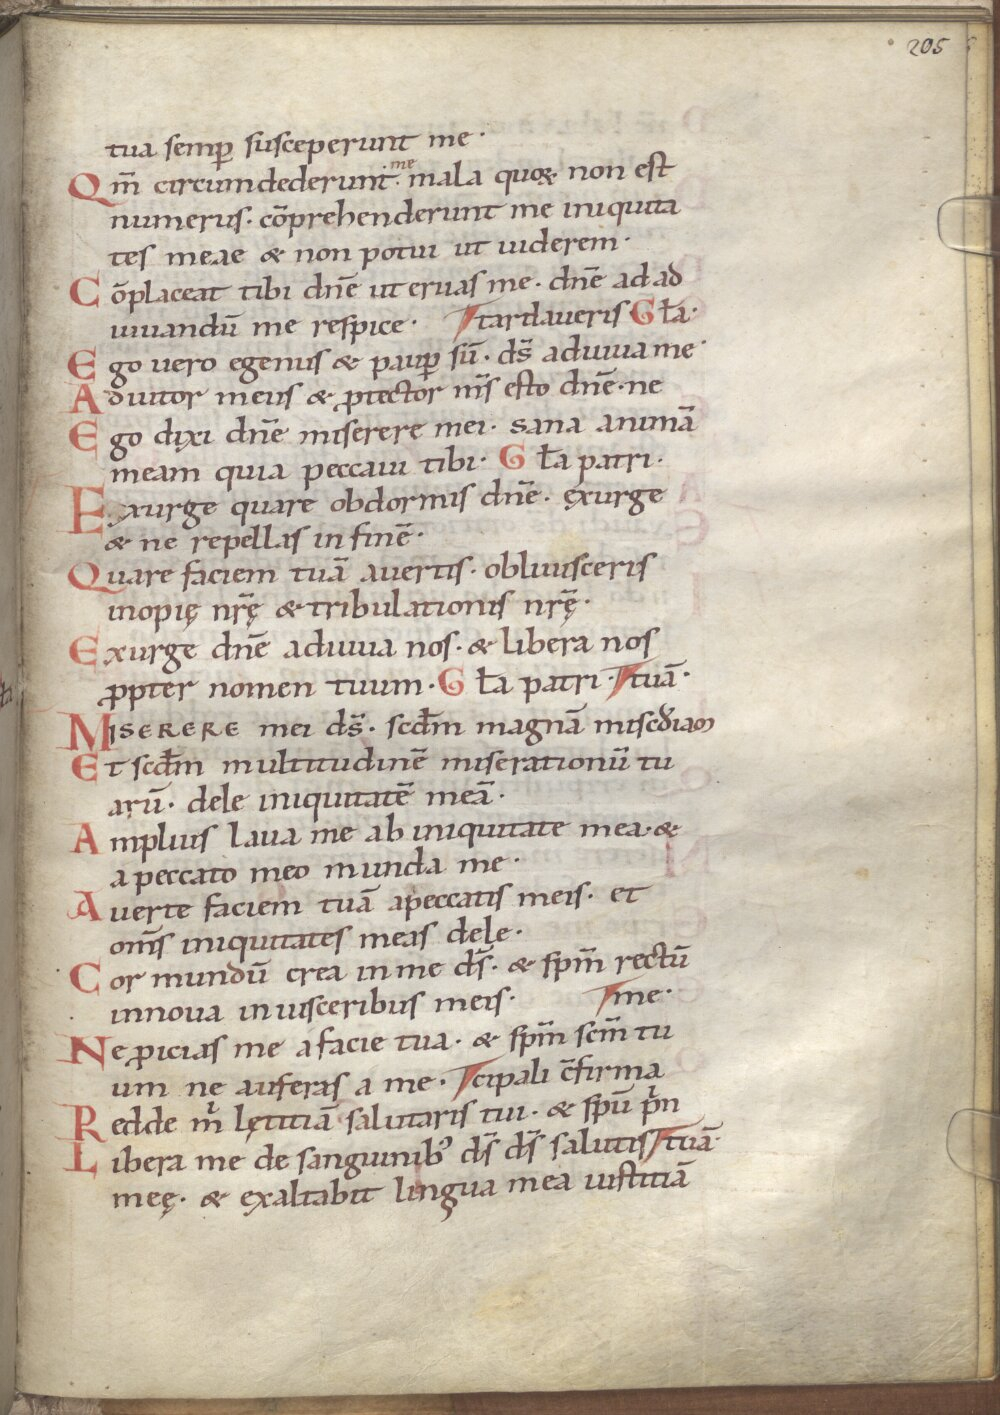 205
tua semꝑ susceperunt me·
Qm̄ circumdederunt· me mala quoꝝ· non est
numerus· cōprehenderunt me iniquita
tes meae & non potui ut uiderem·
Cōplaceat tibi dn̄e ut eruas me· dn̄e ad ad
iuuandū me respice· tardaueris Gl̄a·
Ego uero egenus & pauꝑ sū· ds̄ adiuua me·
Adiutor meus & ꝓtector m̄s esto dn̄e· ne
Ego dixi dn̄e miserere mei· sana animā
meam quia peccaui tibi· Gl̄a patri·
Exurge quare obdormis dn̄e· exurge
& ne repellas in finē·
Quare faciem tuā auertis· obliuisceris
inopię nr̄ę & tribulationis nr̄ę·
Exurge dn̄e adiuua nos· & libera nos
ꝓpter nomen tuum· Gl̄a patri· tuā·
Miserere mei ds̄· scd̄m magnā misc̄diam
Et scd̄m multitudinē miserationū tu
arū· dele iniquitatē meā·
Amplius laua me ab iniquitate mea· &
a peccato meo munda me·
Auerte faciem tuā a peccatis meis· et
om̄s iniquitates meas dele·
Cor mundū crea in me ds̄· & sp̄m rectū
innoua in uisceribus meis· me·
Ne ꝓicias me a facie tua· & sp̄m sc̄m tu
um ne auferas a me· cipali c̄firma
Redde m̄ lętitiā salutaris tui· & sp̄u p̄n
Libera me de sanguinibꝰ ds̄ ds̄ salutis tuā·
meę· & exaltabit lingua mea iustitiā